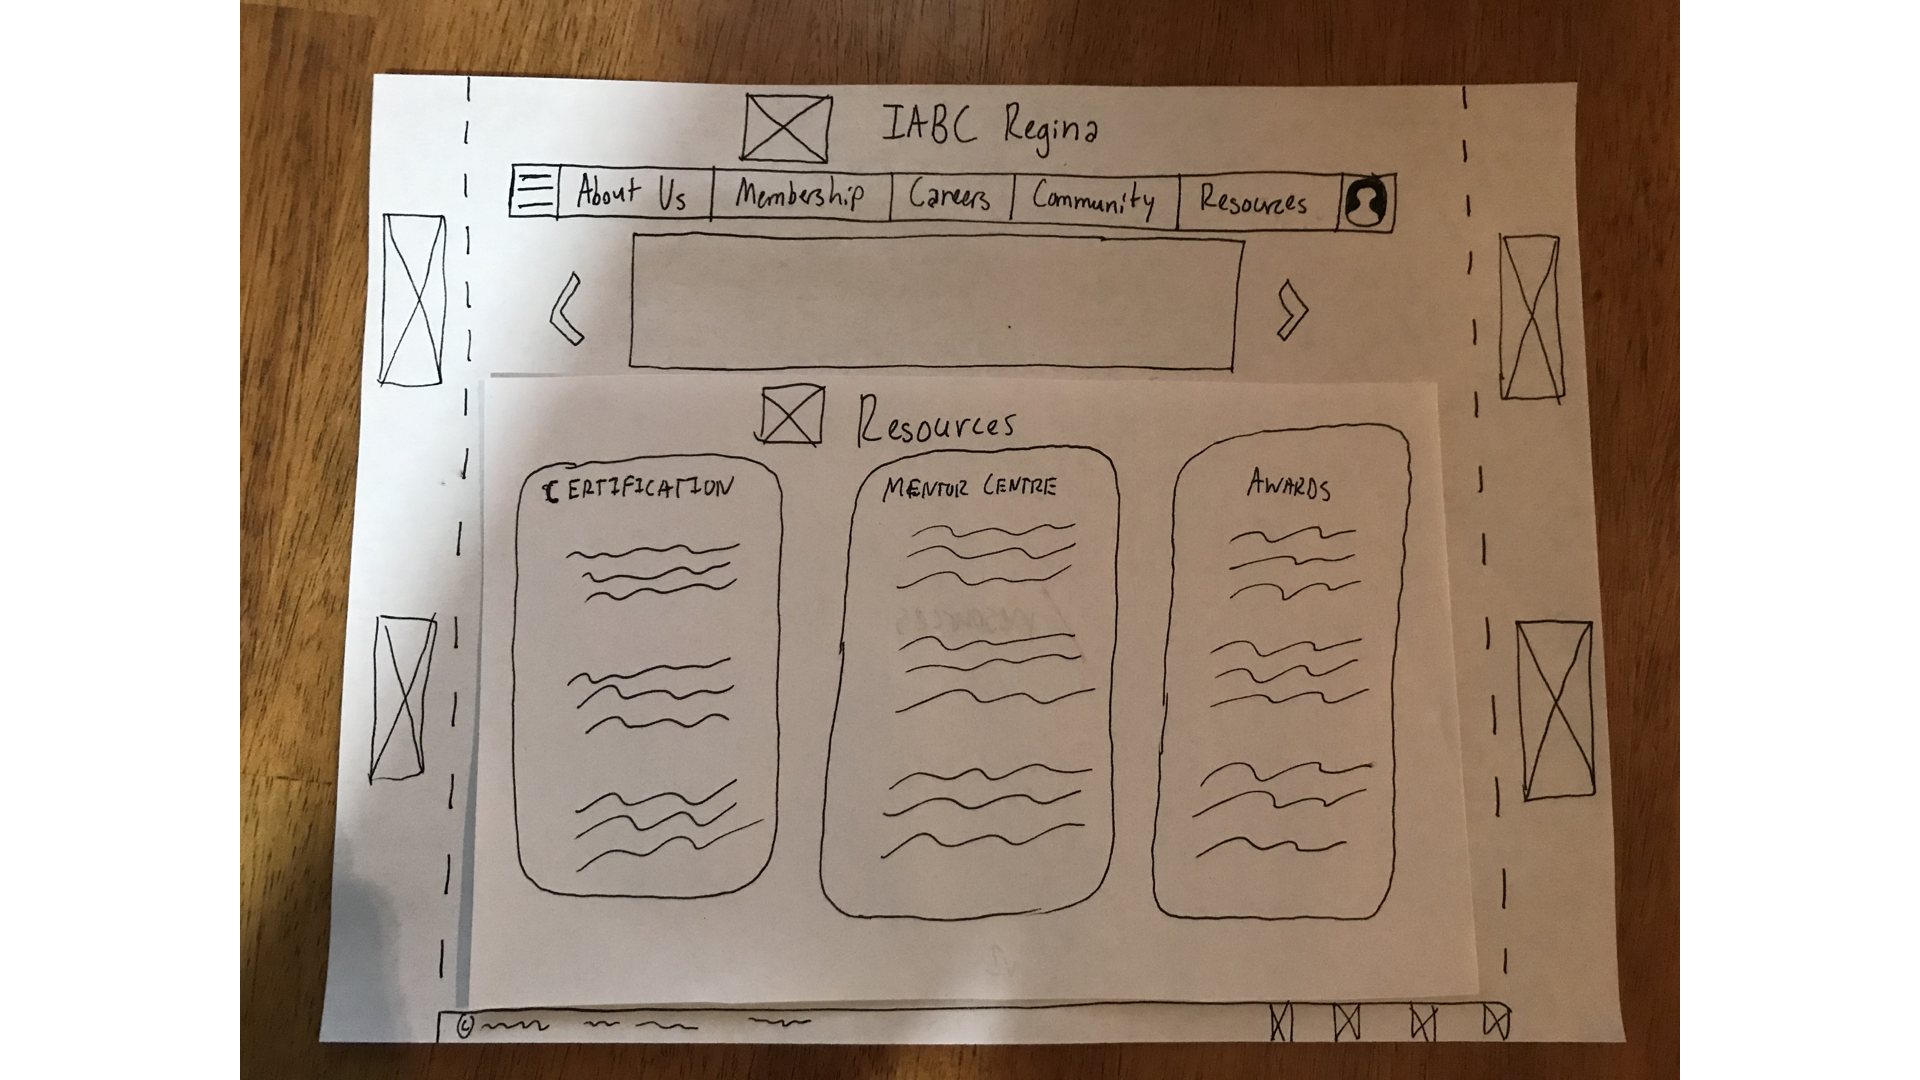 IABC Regina
About Us Membership Careers Community Resources
Resources
CERTIFICATION MENTOR CENTRE AWARDS
©